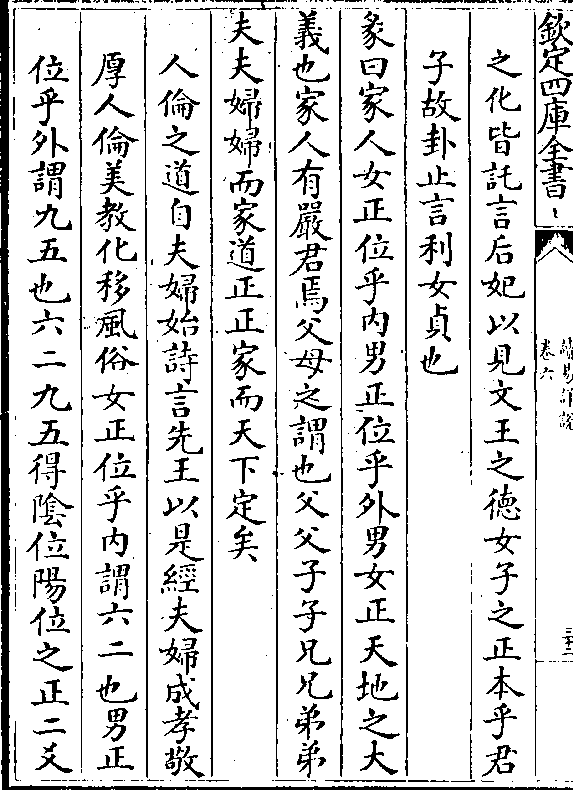 欽定四庫全書
讀易詳說
卷六
三十二
之化皆託言后妃以見文王之徳女子之正本乎君
子故卦止言利女貞也
彖曰家人女正位乎内男正位乎外男女正天地之大
義也家人有嚴君焉父母之謂也父父子子兄兄弟弟
夫夫婦婦而家道正正家而天下定矣
人倫之道自夫婦始詩言先王以是經夫婦成孝敬
厚人倫美教化移風俗女正位乎内謂六二也男正
位乎外謂九五也六二九五得隂位陽位之正二爻